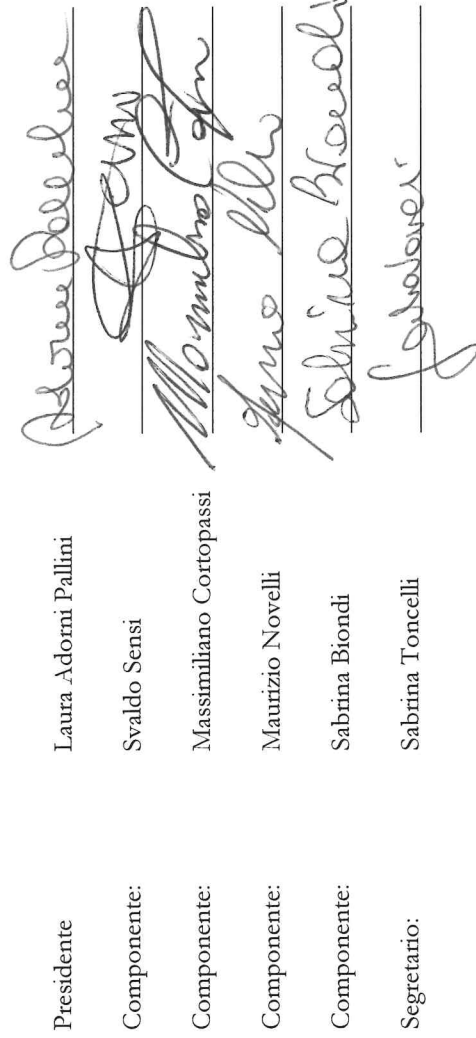 Presidente Laura Adorni Pallini
Componente: Svaldo Sensi
Componente: Massimiliano Cortopassi
Componente: Maurizio Novelli
Componente: Sabrina Biondi Sabrina Biondi
Segretario: Sabrina Toncelli